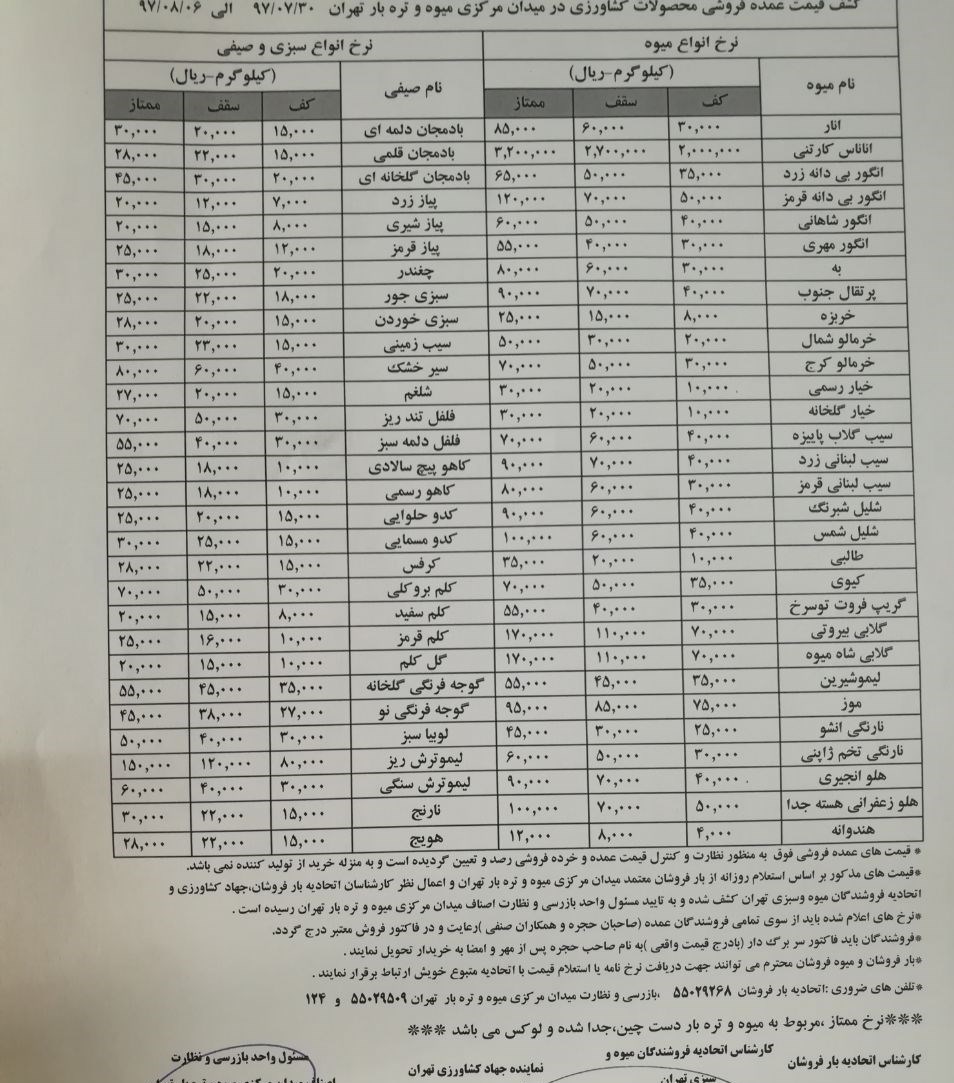 کشف قیمت عمده فروشی محصولات کشاورزی در میدان مرکزی میوه و تره بار تهران ۹۷/۰۷/۳۰ الی ۹۷/۰۸/۰۶
نرخ انواع میوه نرخ انواع سبزی و صیفی
نام میوه (کیلوگرم-ریال) نام صیفی (کیلوگرم-ریال)
کف سقف ممتاز کف سقف ممتاز
انار ۳۰,۰۰۰ ۶۰,۰۰۰ ۸۵,۰۰۰ بادمجان دلمه ای ۱۵,۰۰۰ ۲۰,۰۰۰ ۳۰,۰۰۰
اناناس کارتنی ۲,۰۰۰,۰۰۰ ۲,۷۰۰,۰۰۰ ۳,۲۰۰,۰۰۰ بادمجان قلمی ۱۵,۰۰۰ ۲۲,۰۰۰ ۲۸,۰۰۰
انگور بی دانه زرد ۳۵,۰۰۰ ۵۰,۰۰۰ ۶۵,۰۰۰ بادمجان گلخانه ای ۲۰,۰۰۰ ۳۰,۰۰۰ ۴۵,۰۰۰
انگور بی دانه قرمز ۵۰,۰۰۰ ۷۰,۰۰۰ ۱۲۰,۰۰۰ پیاز زرد ۷,۰۰۰ ۱۲,۰۰۰ ۲۰,۰۰۰
انگور شاهانی ۴۰,۰۰۰ ۵۰,۰۰۰ ۶۰,۰۰۰ پیاز شیری ۸,۰۰۰ ۱۵,۰۰۰ ۲۰,۰۰۰
انگور مهری ۳۰,۰۰۰ ۴۰,۰۰۰ ۵۵,۰۰۰ پیاز قرمز ۱۲,۰۰۰ ۱۸,۰۰۰ ۲۵,۰۰۰
به ۳۰,۰۰۰ ۶۰,۰۰۰ ۸۰,۰۰۰ چغندر ۲۰,۰۰۰ ۲۵,۰۰۰ ۳۰,۰۰۰
پرتقال جنوب ۴۰,۰۰۰ ۷۰,۰۰۰ ۹۰,۰۰۰ سبزی جور ۱۸,۰۰۰ ۲۲,۰۰۰ ۲۵,۰۰۰
خربزه ۸,۰۰۰ ۱۵,۰۰۰ ۲۵,۰۰۰ سبزی خوردن ۱۵,۰۰۰ ۲۰,۰۰۰ ۲۸,۰۰۰
خرمالو شمال ۲۰,۰۰۰ ۳۰,۰۰۰ ۵۰,۰۰۰ سیب زمینی ۱۵,۰۰۰ ۲۳,۰۰۰ ۳۰,۰۰۰
خرمالو کرج ۳۰,۰۰۰ ۵۰,۰۰۰ ۷۰,۰۰۰ سیر خشک ۴۰,۰۰۰ ۶۰,۰۰۰ ۸۰,۰۰۰
خیار رسمی ۱۰,۰۰۰ ۲۰,۰۰۰ ۳۰,۰۰۰ شلغم ۱۵,۰۰۰ ۲۰,۰۰۰ ۲۷,۰۰۰
خیار گلخانه ۱۰,۰۰۰ ۲۰,۰۰۰ ۳۰,۰۰۰ فلفل تند ریز ۳۰,۰۰۰ ۵۰,۰۰۰ ۷۰,۰۰۰
سیب گلاب پاییزه ۴۰,۰۰۰ ۶۰,۰۰۰ ۷۰,۰۰۰ فلفل دلمه سبز ۳۰,۰۰۰ ۴۰,۰۰۰ ۵۵,۰۰۰
سیب لبنانی زرد ۴۰,۰۰۰ ۷۰,۰۰۰ ۹۰,۰۰۰ کاهو پیچ سالادی ۱۰,۰۰۰ ۱۸,۰۰۰ ۲۵,۰۰۰
سیب لبنانی قرمز ۳۰,۰۰۰ ۶۰,۰۰۰ ۸۰,۰۰۰ کاهو رسمی ۱۰,۰۰۰ ۱۸,۰۰۰ ۲۵,۰۰۰
شلیل شبرنگ ۴۰,۰۰۰ ۶۰,۰۰۰ ۹۰,۰۰۰ کدو حلوایی ۱۵,۰۰۰ ۲۰,۰۰۰ ۲۵,۰۰۰
شلیل شمس ۴۰,۰۰۰ ۶۰,۰۰۰ ۱۰۰,۰۰۰ کدو مسمایی ۱۵,۰۰۰ ۲۵,۰۰۰ ۳۰,۰۰۰
طالبی ۱۰,۰۰۰ ۲۰,۰۰۰ ۳۵,۰۰۰ کرفس ۱۵,۰۰۰ ۲۲,۰۰۰ ۲۸,۰۰۰
کیوی ۳۵,۰۰۰ ۵۰,۰۰۰ ۷۰,۰۰۰ کلم بروکلی ۳۰,۰۰۰ ۵۰,۰۰۰ ۷۰,۰۰۰
گریپ فروت توسرخ ۳۰,۰۰۰ ۴۰,۰۰۰ ۵۵,۰۰۰ کلم سفید ۸,۰۰۰ ۱۵,۰۰۰ ۲۰,۰۰۰
گلابی بیروتی ۷۰,۰۰۰ ۱۱۰,۰۰۰ ۱۷۰,۰۰۰ کلم قرمز ۱۰,۰۰۰ ۱۶,۰۰۰ ۲۵,۰۰۰
گلابی شاه میوه ۷۰,۰۰۰ ۱۱۰,۰۰۰ ۱۷۰,۰۰۰ گل کلم ۱۰,۰۰۰ ۱۵,۰۰۰ ۲۰,۰۰۰
لیموشیرین ۳۵,۰۰۰ ۴۵,۰۰۰ ۵۵,۰۰۰ گوجه فرنگی گلخانه ۳۵,۰۰۰ ۴۵,۰۰۰ ۵۵,۰۰۰
موز ۷۵,۰۰۰ ۸۵,۰۰۰ ۹۵,۰۰۰ گوجه فرنگی نو ۲۷,۰۰۰ ۳۸,۰۰۰ ۴۵,۰۰۰
نارنگی انشو ۲۵,۰۰۰ ۳۰,۰۰۰ ۴۵,۰۰۰ لوبیا سبز ۳۰,۰۰۰ ۴۰,۰۰۰ ۵۰,۰۰۰
نارنگی تخم ژاپنی ۳۰,۰۰۰ ۵۰,۰۰۰ ۶۰,۰۰۰ لیموترش ریز ۸۰,۰۰۰ ۱۲۰,۰۰۰ ۱۵۰,۰۰۰
هلو انجیری ۴۰,۰۰۰ ۷۰,۰۰۰ ۹۰,۰۰۰ لیموترش سنگی ۳۰,۰۰۰ ۴۰,۰۰۰ ۶۰,۰۰۰
هلو زعفرانی هسته جدا ۵۰,۰۰۰ ۷۰,۰۰۰ ۱۰۰,۰۰۰ نارنج ۱۵,۰۰۰ ۲۲,۰۰۰ ۳۰,۰۰۰
هندوانه ۴,۰۰۰ ۸,۰۰۰ ۱۲,۰۰۰ هویج ۱۵,۰۰۰ ۲۲,۰۰۰ ۲۸,۰۰۰
* قیمت های عمده فروشی فوق به منظور نظارت و کنترل قیمت عمده و خرده فروشی رصد و تعیین گردیده است و به منزله خرید از تولید کننده نمی باشد.
*قیمت های مذکور بر اساس استعلام روزانه از بار فروشان معتمد میدان مرکزی میوه و تره بار تهران و اعمال نظر کارشناسان اتحادیه بار فروشان،جهاد کشاورزی و
اتحادیه فروشندگان میوه وسبزی تهران کشف شده و به تایید مسئول واحد بازرسی و نظارت اصناف میدان مرکزی میوه و تره بار تهران رسیده است .
*نرخ های اعلام شده باید از سوی تمامی فروشندگان عمده (صاحبان حجره و همکاران صنفی )رعایت و در فاکتور فروش معتبر درج گردد.
*فروشندگان باید فاکتور سر برگ دار (بادرج قیمت واقعی )به نام صاحب حجره پس از مهر و امضا به خریدار تحویل نمایند .
*بار فروشان و میوه فروشان محترم می توانند جهت دریافت نرخ نامه یا استعلام قیمت با اتحادیه متبوع خویش ارتباط برقرار نمایند .
*تلفن های ضروری :اتحادیه بار فروشان ۵۵۰۲۹۲۶۸ ،بازرسی و نظارت میدان مرکزی میوه و تره بار تهران ۵۵۰۲۹۵۰۹ و ۱۲۴
***نرخ ممتاز ،مربوط به میوه و تره بار دست چین،جدا شده و لوکس می باشد ***
کارشناس اتحادیه بار فروشان کارشناس اتحادیه فروشندگان میوه و نماینده جهاد کشاورزی تهران مسئول واحد بازرسی و نظارت
سبزی تهران